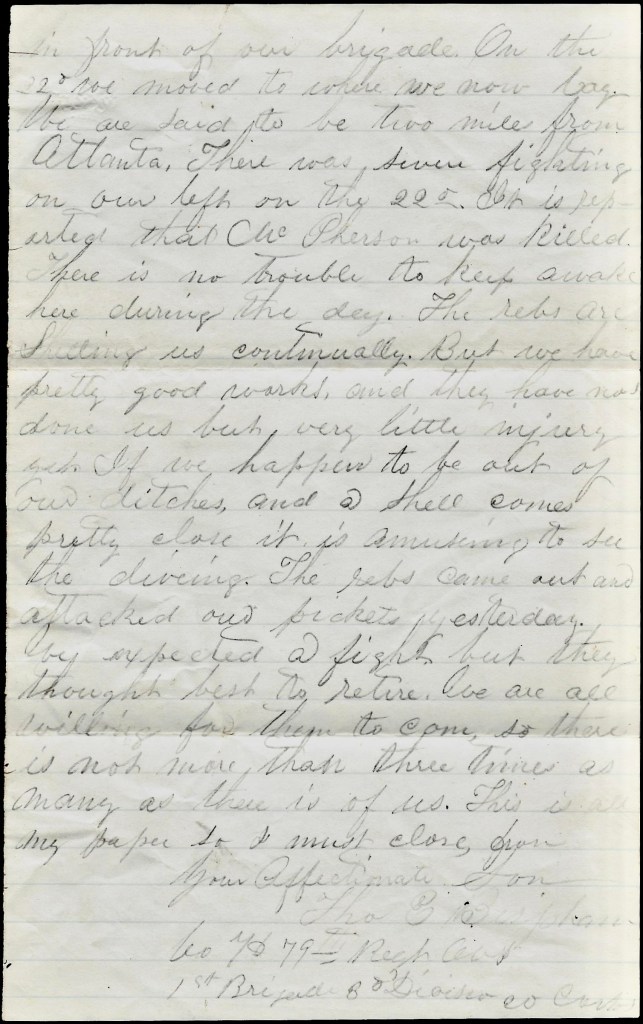 in front of our brigade. On the
22d we moved to where we now lay.
We are said to be two mile from
Atlanta. There was severe fighting
on our left on the 22d. It is rep-
orted that Mc Pherson was killed.
There is no trouble to keep awake
here during the day. The rebs are
Shelling us continually. But we have
pretty good works, and they have not
done us but very little injury
yet. If we happen to be out of
our ditches, and a shell comes
pretty close it is amusing to see
the diveing. The rebs came out and
attacked our pickets yesterday.
We expected a fight but they
thought best to retire. We are all
willing for them to com, so there
is not more than three times as
many as there is of us. This is all
my paper so I must close, from
Your Affectionate Son
Tho E
Co 79th Regt
1st Brigade 3d Division